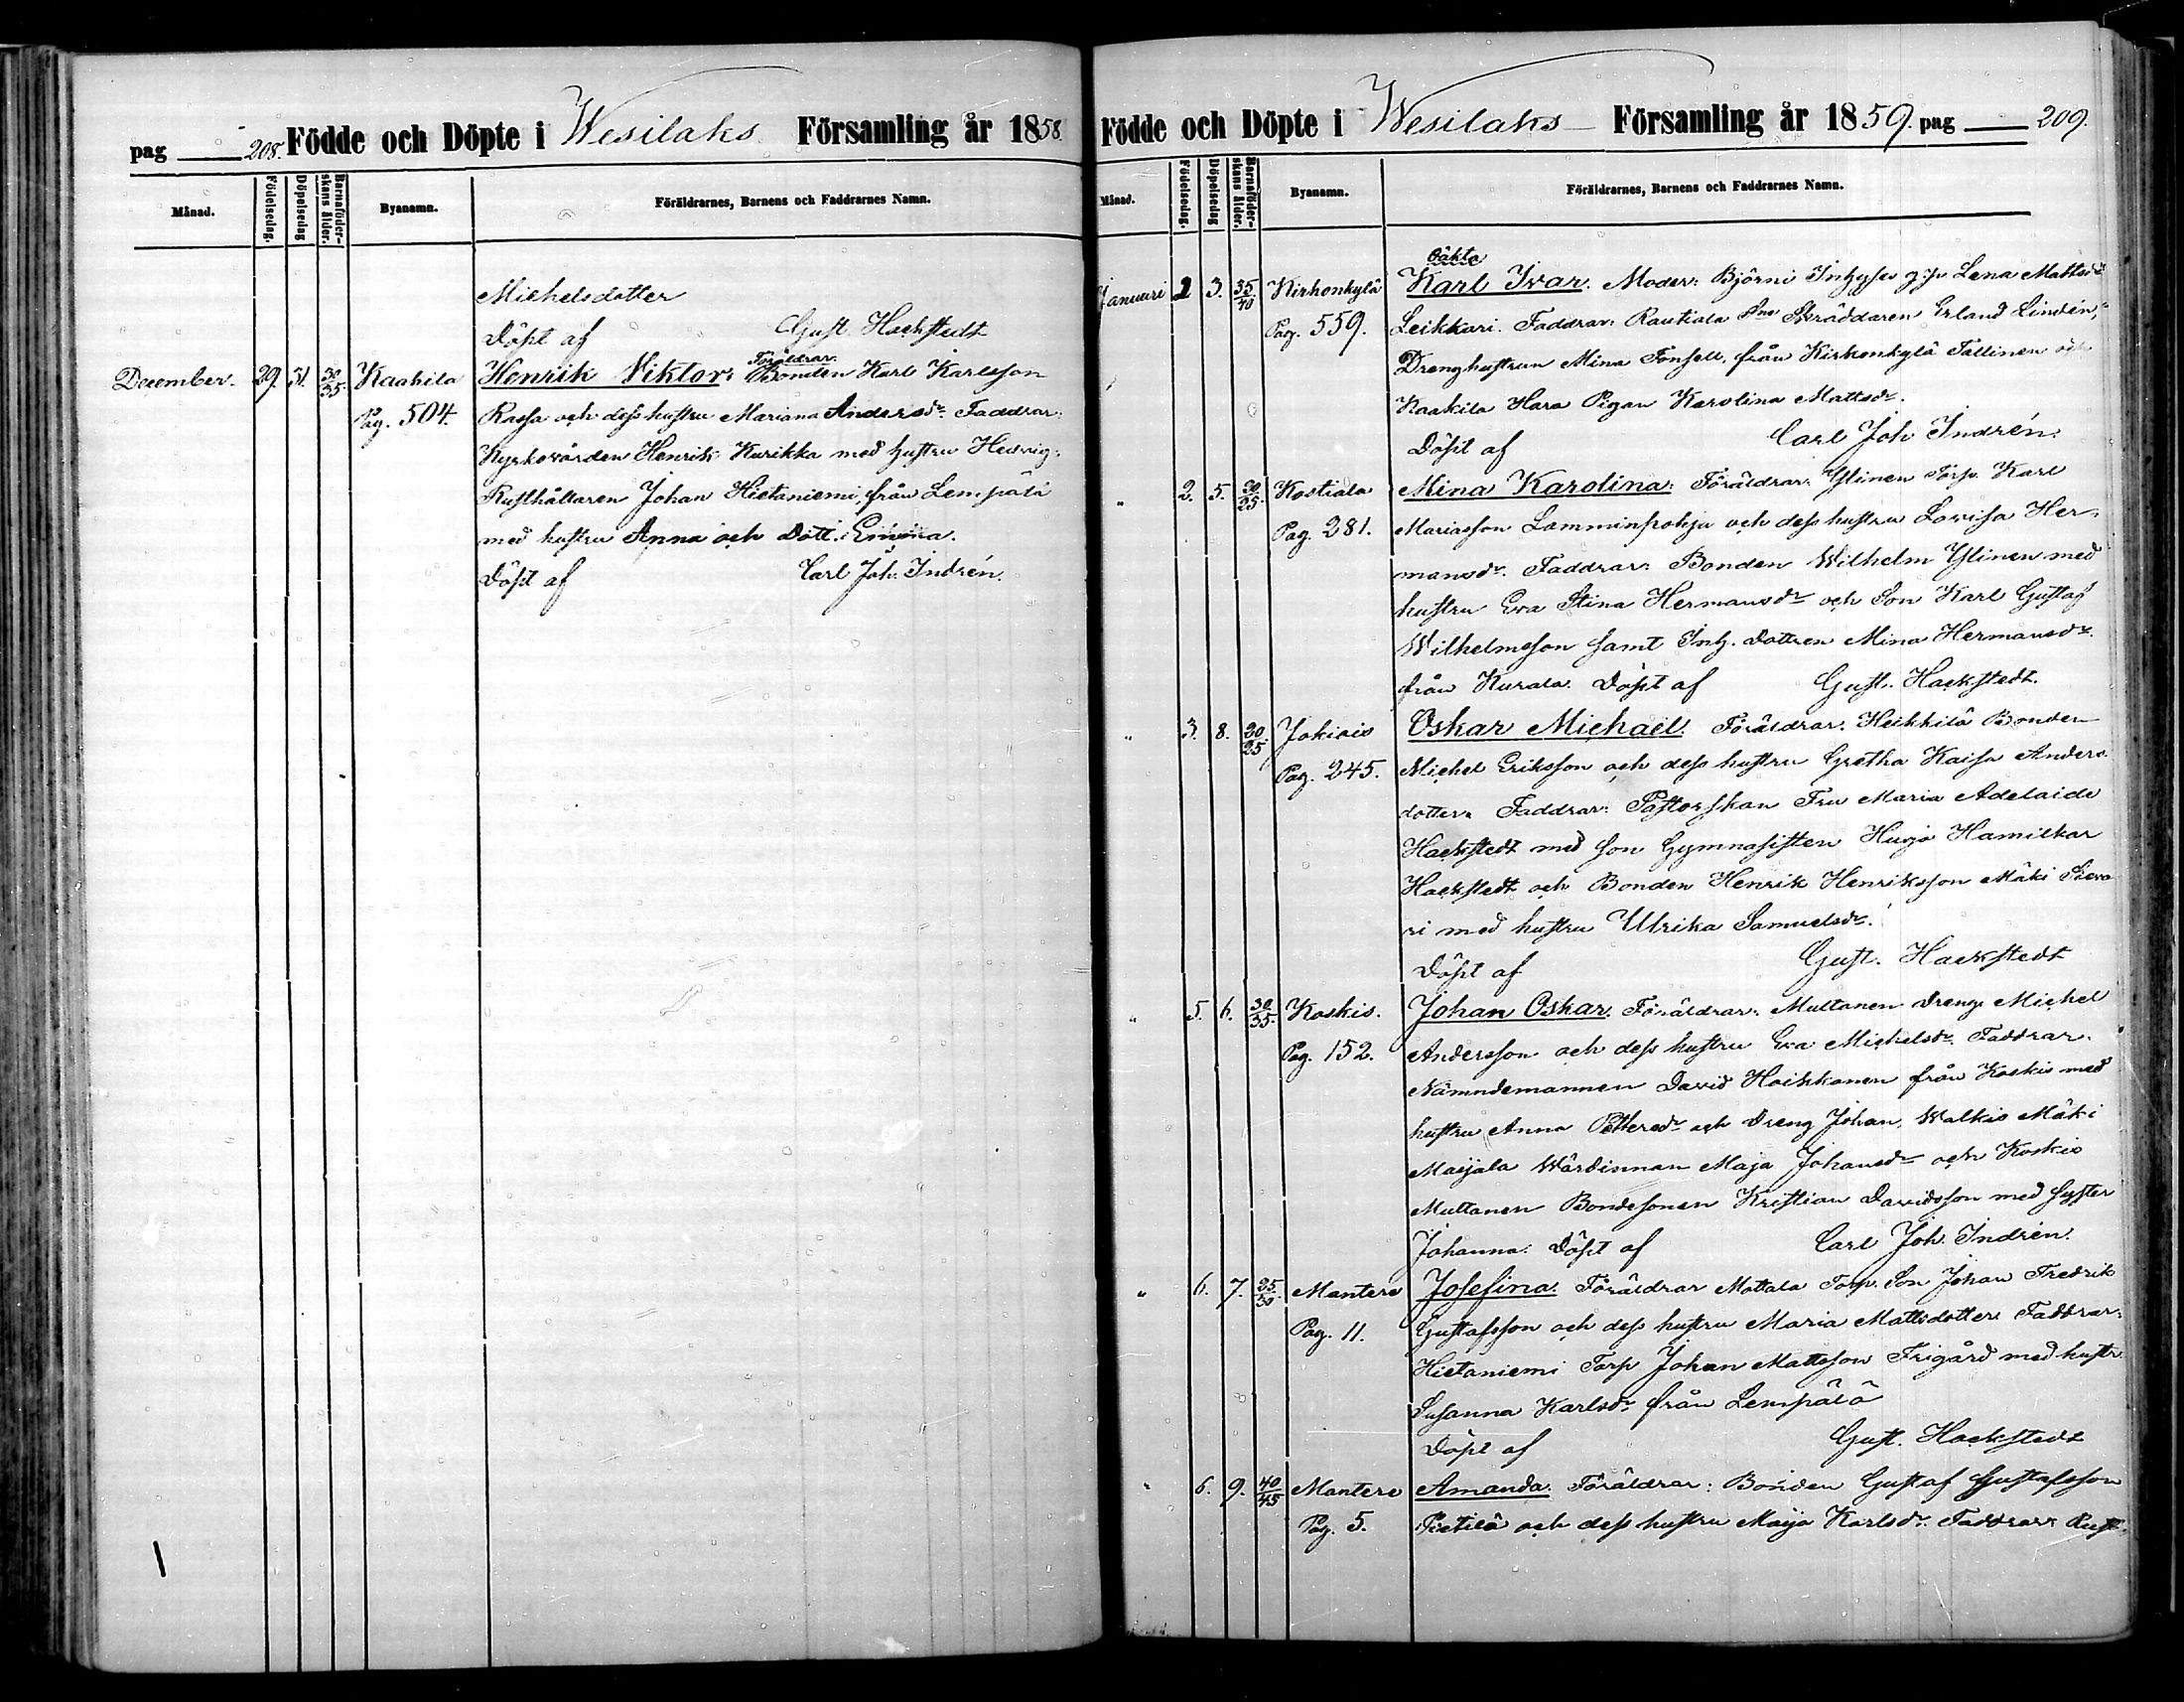 pag 208. Födde och Döpte i Wesilaks Församling år 1858.
Månad. Födelsedag. Döpelsedag Barnaföderskans ålder. Byanamn. Föräldrarnes, Barnens och Faddrarnes Namn.
Michelsdotter
Döpt af Gust. Hackstedt
Föräldrar:
December. 29. 31. 30/35 Kaakila Henrik Viktor: Bonden Karl Karlsson
Pag. 504. Rassa och dess hustru Mariana Andersdr. Faddrar:
Kyrkovärden Henrik Kurikka med hustru Hedvig.
Rusthållaren Johan Hietaniemi från Lempälä
med hustru Anna och Dott. Emma.
Döpt af Carl Joh. Indrén.
Födde och Döpte i Wesilaks Församling år 1859. pag 209.
Månad. Födelsedag. Döpelsedag Barnaföderskans ålder. Byanamn. Föräldrarnes, Barnens och Faddrarnes Namn.
Oäkta
Januari 2 3. 35/40 Kirkonkylä Karl Ivar. Moder: Björni Inhyses p. Lena Mattsdr
Pag. 559. Leikkari. Faddrar: Rautiala Skräddaren Erland Lindén,
Drenghustrun Mina Tonsell, från Kirkonkylä Tallinen och
Kaakila Hara Pigan Karolina Mattsdr.
Döpt af Carl Joh Indrén.
" 2. 5. 30/25. Kostiala Mina Karolina: Föräldrar: Ylinen Torp. Karl
Pag. 281. Mariasson Lamminpohja och dess hustru Lovisa Her-
mansdr. Faddrar: Bonden Wilhelm Ylinen med
hustru Eva Stina Hermansdr och Son Karl Gustaf
Wilhelmsson samt Inh. dottren Mina Hermansdr.
från Kurala. Döpt af Gust. Hackstedt.
" 3. 8. 20/25 Jokiois Oskar Michaël. Föräldrar: Heikkilä Bonden
Pag. 245. Michel Eriksson och dess hustru Gretha Kaisa Anders
dotter. Faddrar: Pastorskan Fru Maria Adelaide
Hackstedt med son Gymnasisten Hugo Hamilkar
Hackstedt och Bonden Henrik Henriksson Mäki Siera
ri med hustru Ulrika Samuelsdr.
Döpt af Gust. Hackstedt
" 5. 6. 30/35. Koskis. Johan Oskar. Föräldrar: Multanen Dreng Michel
Pag. 152. Andersson och dess hustru Eva Michelsdr. Faddrar.
Nämndemannen David Hoikkanen från Koskis med
hustru Anna Pettersdr och Dreng Johan, Walkis Mäki
Maijala Wärdinnan Maja Johansdr och Koskis
Multanen Bondesonen Kristian Davidsson med syster
Johanna. Döpt af Carl Joh. Indrén.
" 6. 7. 25/30. Mantere Josefina. Föräldrar Mattala Torp. Son Johan Fredrik
Pag. 11. Gustafsson och dess hustru Maria Mattsdotter. Faddrar:
Hietaniemi Torp Johan Mattsson Frigård med hustr.
Susanna Karlsdr från Lempälä
Döpt af Gust. Hackstedt
" 6. 9. 40/45 Mantere Amanda. Föräldrar: Bonden Gustaf Gustafsson
Pag. 5. Pietilä och dess hustru Maija Karlsdr. Faddrar: Rust-